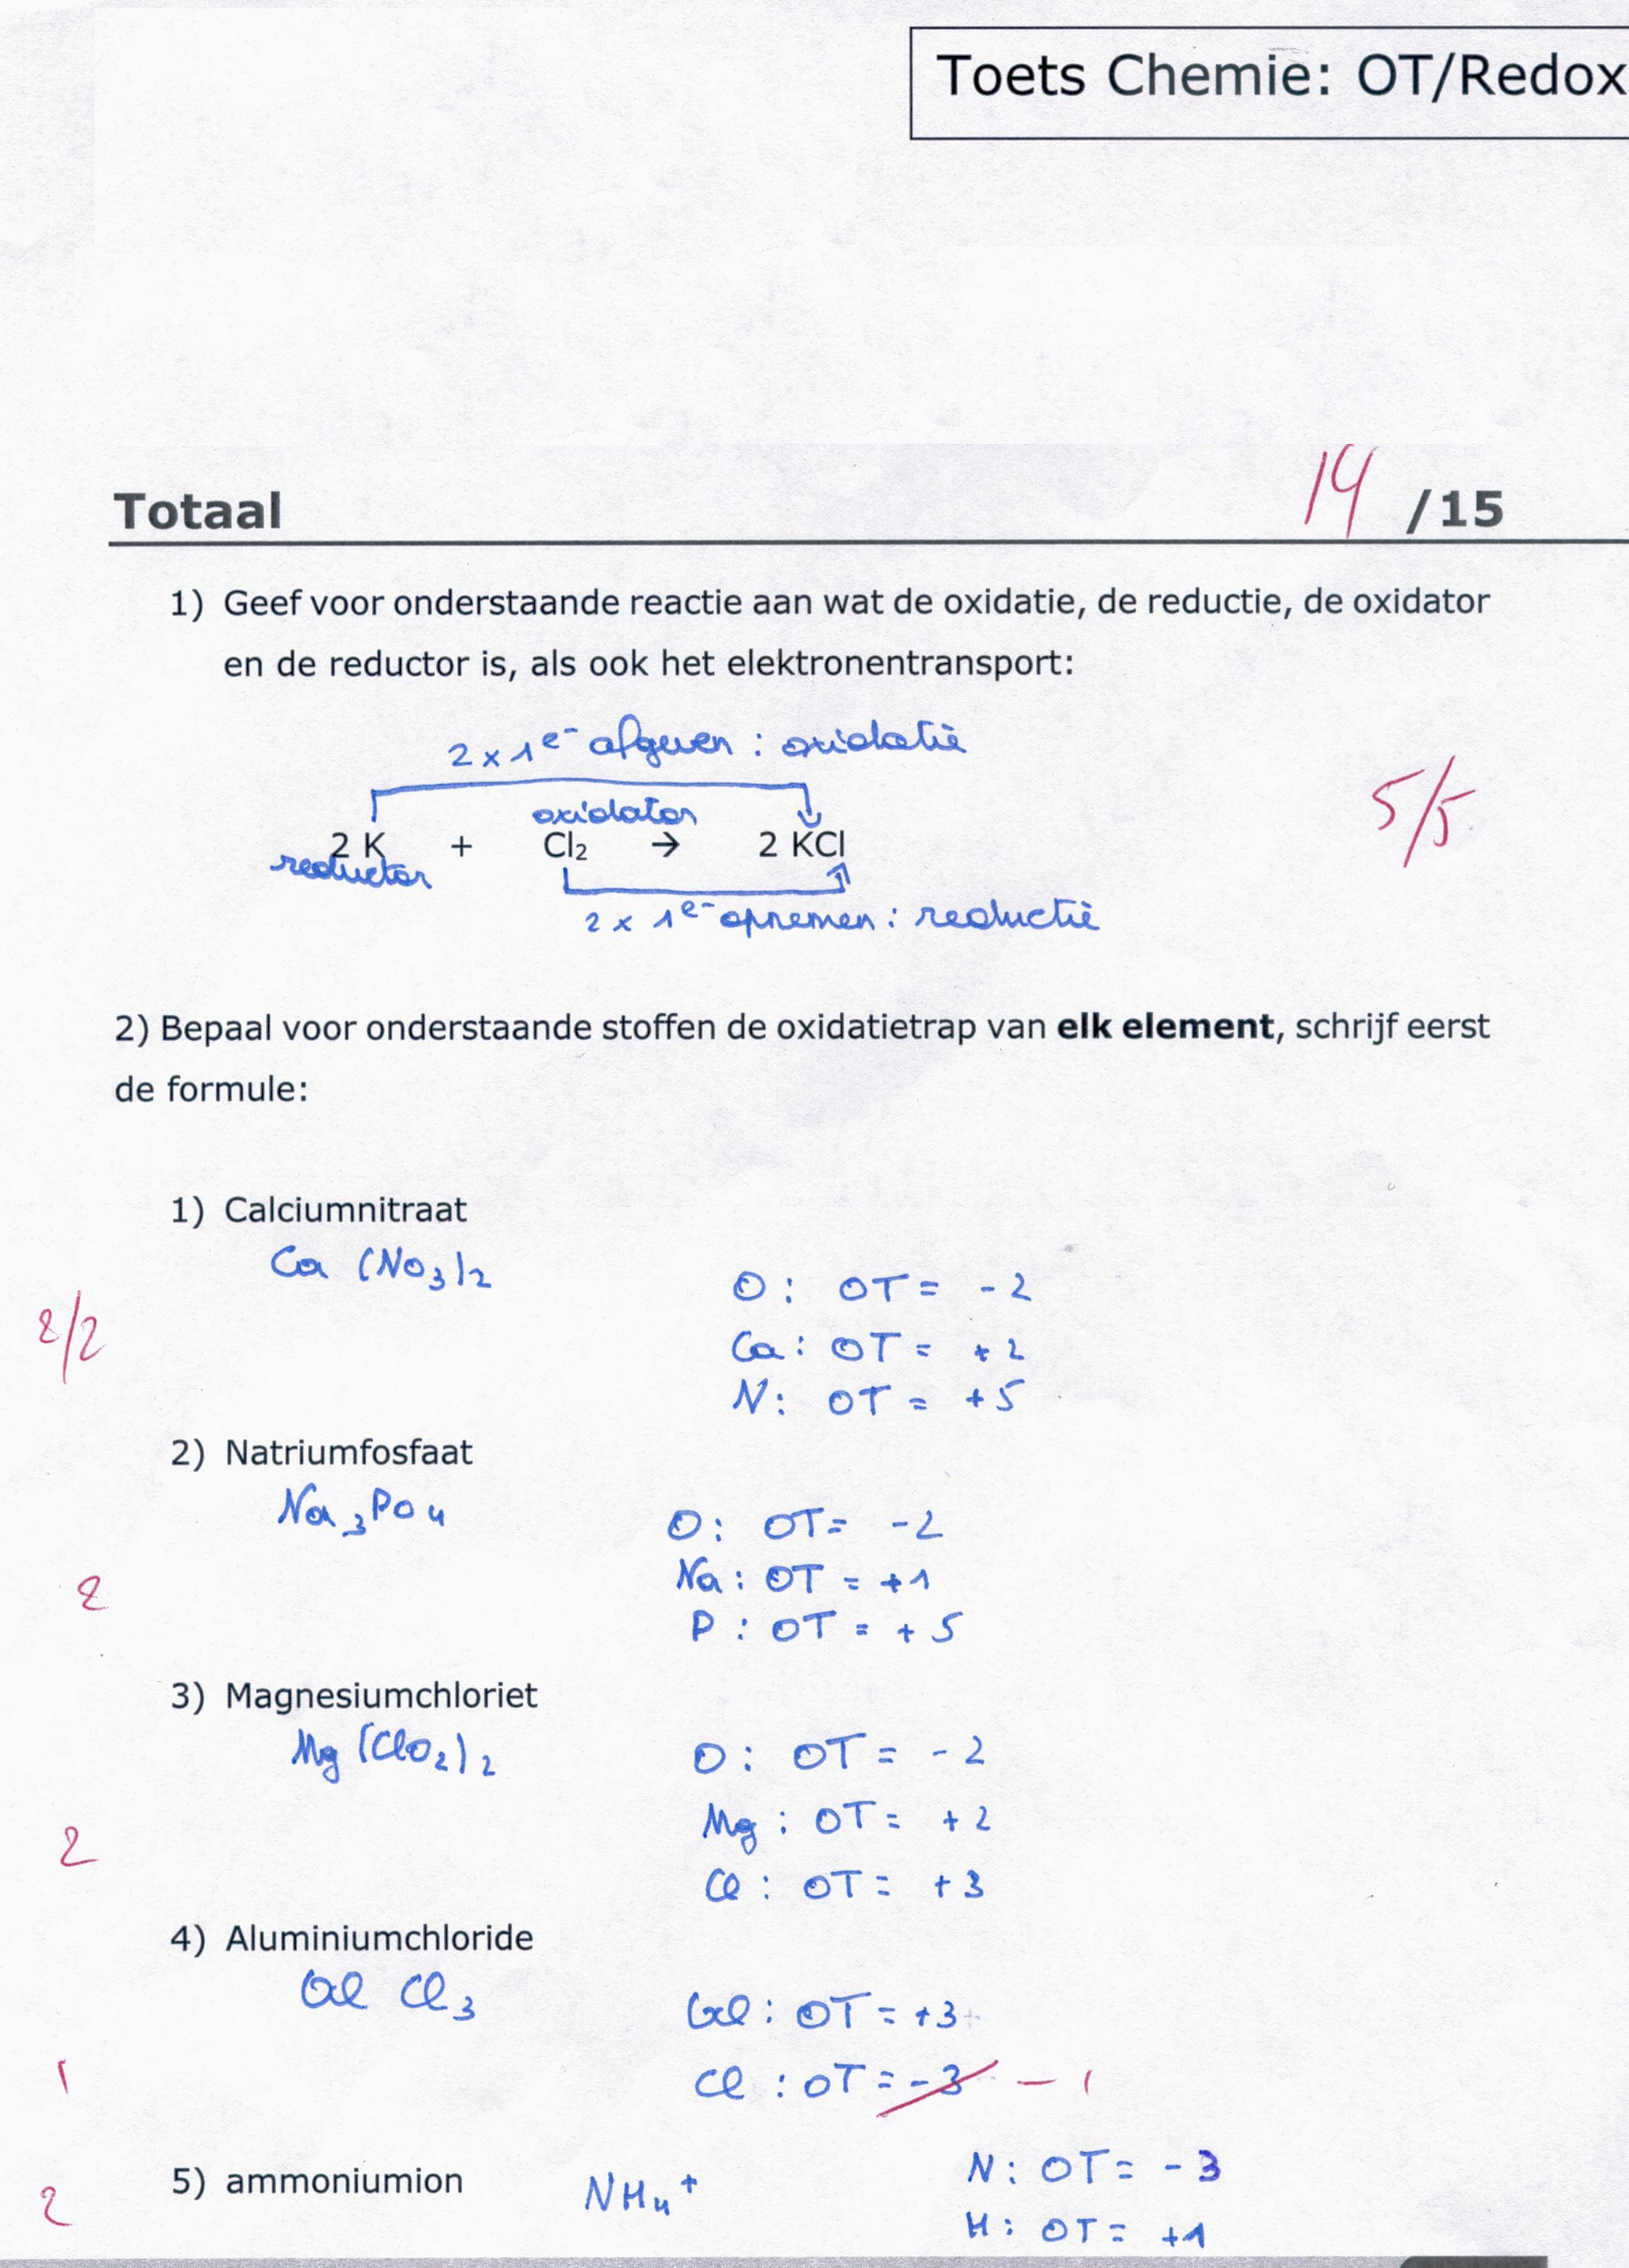 Toets Chemie: OT/Redox
14 /15
Totaal
1) Geef voor onderstaande reactie aan wat de oxidatie, de reductie, de oxidator
en de reductor is, als ook het elektronentransport:
2 x 1e⁻ afgeven : oxidatie
5/5
oxidator
2 K + Cl₂ → 2 KCl
reductor
2 x 1e⁻ opnemen : reductie
2) Bepaal voor onderstaande stoffen de oxidatietrap van elk element, schrijf eerst
de formule:
1) Calciumnitraat
Ca (NO₃)₂
O : OT = -2
2/2
Ca : OT = +2
N : OT = +5
2) Natriumfosfaat
Na₃PO₄
O : OT = -2
Na : OT = +1
2
P : OT = +5
3) Magnesiumchloriet
Mg (ClO₂)₂
O : OT = -2
Mg : OT = +2
2
Cl : OT = +3
4) Aluminiumchloride
Al Cl₃
Al : OT = +3
1
Cl : OT = -3 -1
5) ammoniumion NH₄⁺
N : OT = -3
2
H : OT = +1